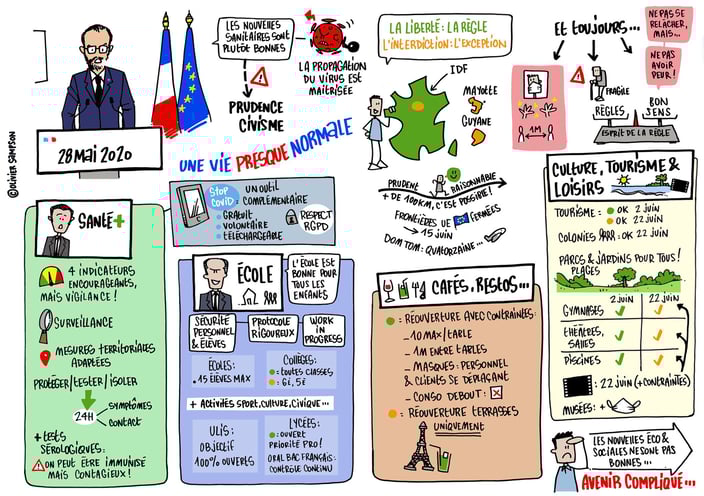 LES NOUVELLES
SANITAIRES SONT
PLUTÔT BONNES
LA PROPAGATION
DU VIRUS EST
MAÎTRISÉE
PRUDENCE
CIVISME
28 MAI 2020
©OLIVIER SAMPSON
UNE VIE PRESQUE NORMALE
LA LIBERTÉ : LA RÈGLE
L'INTERDICTION : L'EXCEPTION
IDF
MAYOTTE
GUYANE
PRUDENT RAISONNABLE
+ DE 100KM, C'EST POSSIBLE !
FRONTIÈRES DE UE FERMÉES
15 JUIN
DOM TOM : QUATORZAINE...
ET TOUJOURS...
NE PAS SE
RELÂCHER,
MAIS...
NE PAS
AVOIR
PEUR !
1M
FRAGILE
RÈGLES
BON
SENS
ESPRIT DE LA RÈGLE
SANTÉ+
4 INDICATEURS
ENCOURAGEANTS,
MAIS VIGILANCE !
SURVEILLANCE
MESURES TERRITORIALES
ADAPTÉES
PROTÉGER/TESTER/ISOLER
24H
SYMPTÔMES
CONTACT
+ TESTS
SÉROLOGIQUES :
ON PEUT ÊTRE IMMUNISÉ
MAIS CONTAGIEUX !
STOP
COVID :
UN OUTIL
COMPLÉMENTAIRE
. GRATUIT
. VOLONTAIRE
. TÉLÉCHARGEABLE
RESPECT
RGPD
ÉCOLE
L'ÉCOLE EST
BONNE POUR
TOUS LES
ENFANTS
SÉCURITÉ
PERSONNEL
& ÉLÈVES
PROTOCOLE
RIGOUREUX
WORK
IN
PROGRESS
ÉCOLES :
. 15 ÉLÈVES MAX
COLLÈGES :
= TOUTES CLASSES
= 6E, 5E
+ ACTIVITÉS SPORT, CULTURE, CIVIQUE...
ULIS :
OBJECTIF
100% OUVERTS
LYCÉES :
= OUVERT
PRIORITÉ PRO !
ORAL BAC FRANÇAIS :
CONTRÔLE CONTINU
CAFÉS, RESTOS...
= RÉOUVERTURE AVEC CONTRAINTES :
_ 10 MAX/TABLE
_ 1M ENTRE TABLES
_ MASQUES : PERSONNEL
& CLIENTS SE DÉPLAÇANT
_ CONSO DEBOUT :
= RÉOUVERTURE TERRASSES
UNIQUEMENT
CULTURE, TOURISME &
LOISIRS
TOURISME : = OK 2 JUIN
= OK 22 JUIN
COLONIES : OK 22 JUIN
PARCS & JARDINS POUR TOUS !
PLAGES
2 JUIN
22 JUIN
GYMNASES
THÉÂTRES,
SALLES
PISCINES
: 22 JUIN (+CONTRAINTES)
MUSÉES : +
LES NOUVELLES ÉCO &
SOCIALES NE SONT PAS
BONNES ...
AVENIR COMPLIQUÉ...